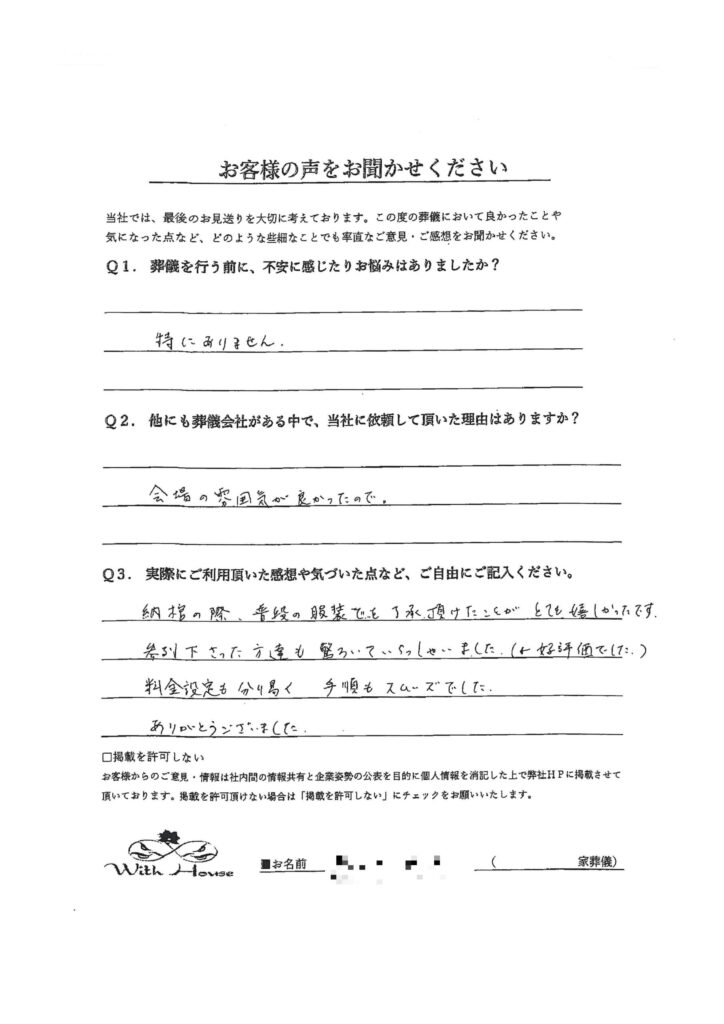 お客様の声をお聞かせください
当社では、最後のお見送りを大切に考えております。この度の葬儀において良かったことや
気になった点など、どのような些細なことでも率直なご意見・ご感想をお聞かせください。
Q1. 葬儀を行う前に、不安に感じたりお悩みはありましたか？
特にありません.
Q2. 他にも葬儀会社がある中で、当社に依頼して頂いた理由はありますか？
会場の雰囲気が良かったので。
Q3. 実際にご利用頂いた感想や気づいた点など、ご自由にご記入ください。
納棺の際、普段の服装でも了承頂けたことがとても嬉しかったです.
参列下さった方達も驚ろいていらっしゃいました.(好評価でした.)
料金設定も分り易く 手順もスムーズでした.
ありがとうございました.
□掲載を許可しない
お客様からのご意見・情報は社内間の情報共有と企業姿勢の公表を目的に個人情報を消記した上で弊社HPに掲載させて
頂いております。掲載を許可頂けない場合は「掲載を許可しない」にチェックをお願いいたします。
With House
■お名前 ( 家葬儀)